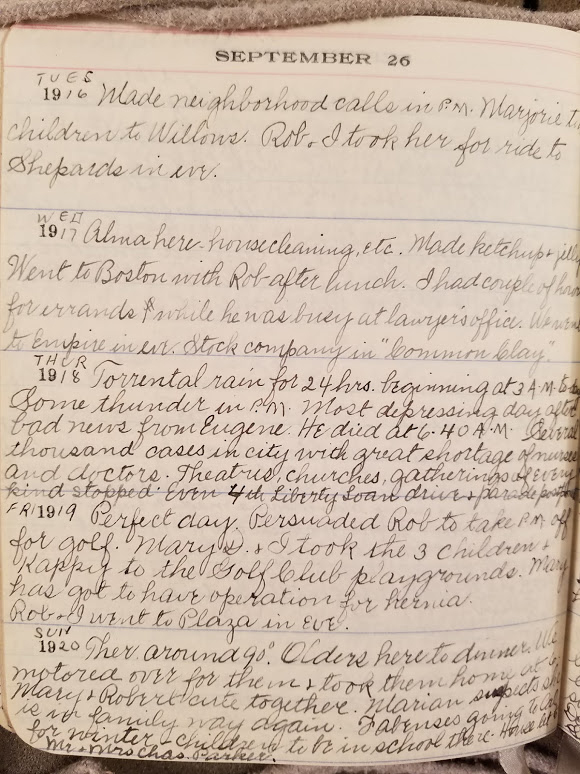 SEPTEMBER 26
TUES
1916 Made neighborhood calls in P.M. Marjorie
children to Willows. Rob & I took her for ride to
Shepards in eve.
WED
1917 Alma here - housecleaning, etc. Made ketchup &
Went to Boston with Rob after lunch. I had couple of
for errands while he was busy at lawyer's office. We
to Empire in eve. Stock company in "Common Clay".
THUR
1918 Torrental rain for 24 hrs. beginning at 3 A.M.
Some thunder in P.M. Most depressing day after
bad news from Eugene. He died at 6.40 A.M. Several
thousand cases in city with great shortage of nurses
and doctors. Theatres, churches, gatherings of every
kind stopped. Even 4th Liberty Loan drive & parade
FRI 1919 Perfect day. Persuaded Rob to take P.M. off
for golf. Mary D. & I took the 3 children &
Kappy to the Golf Club playgrounds. Mary
has got to have operation for hernia.
Rob & I went to Plaza in Eve.
SUN
1920 Ther. around 90°. Olders here to dinner. We
motored over for them & took them home at
Mary & Robert cute together. Marian suspects
is in family way again. Fabenses going to
for winter - children to be in school there. House
Mr. & Mrs Chas. Parker.